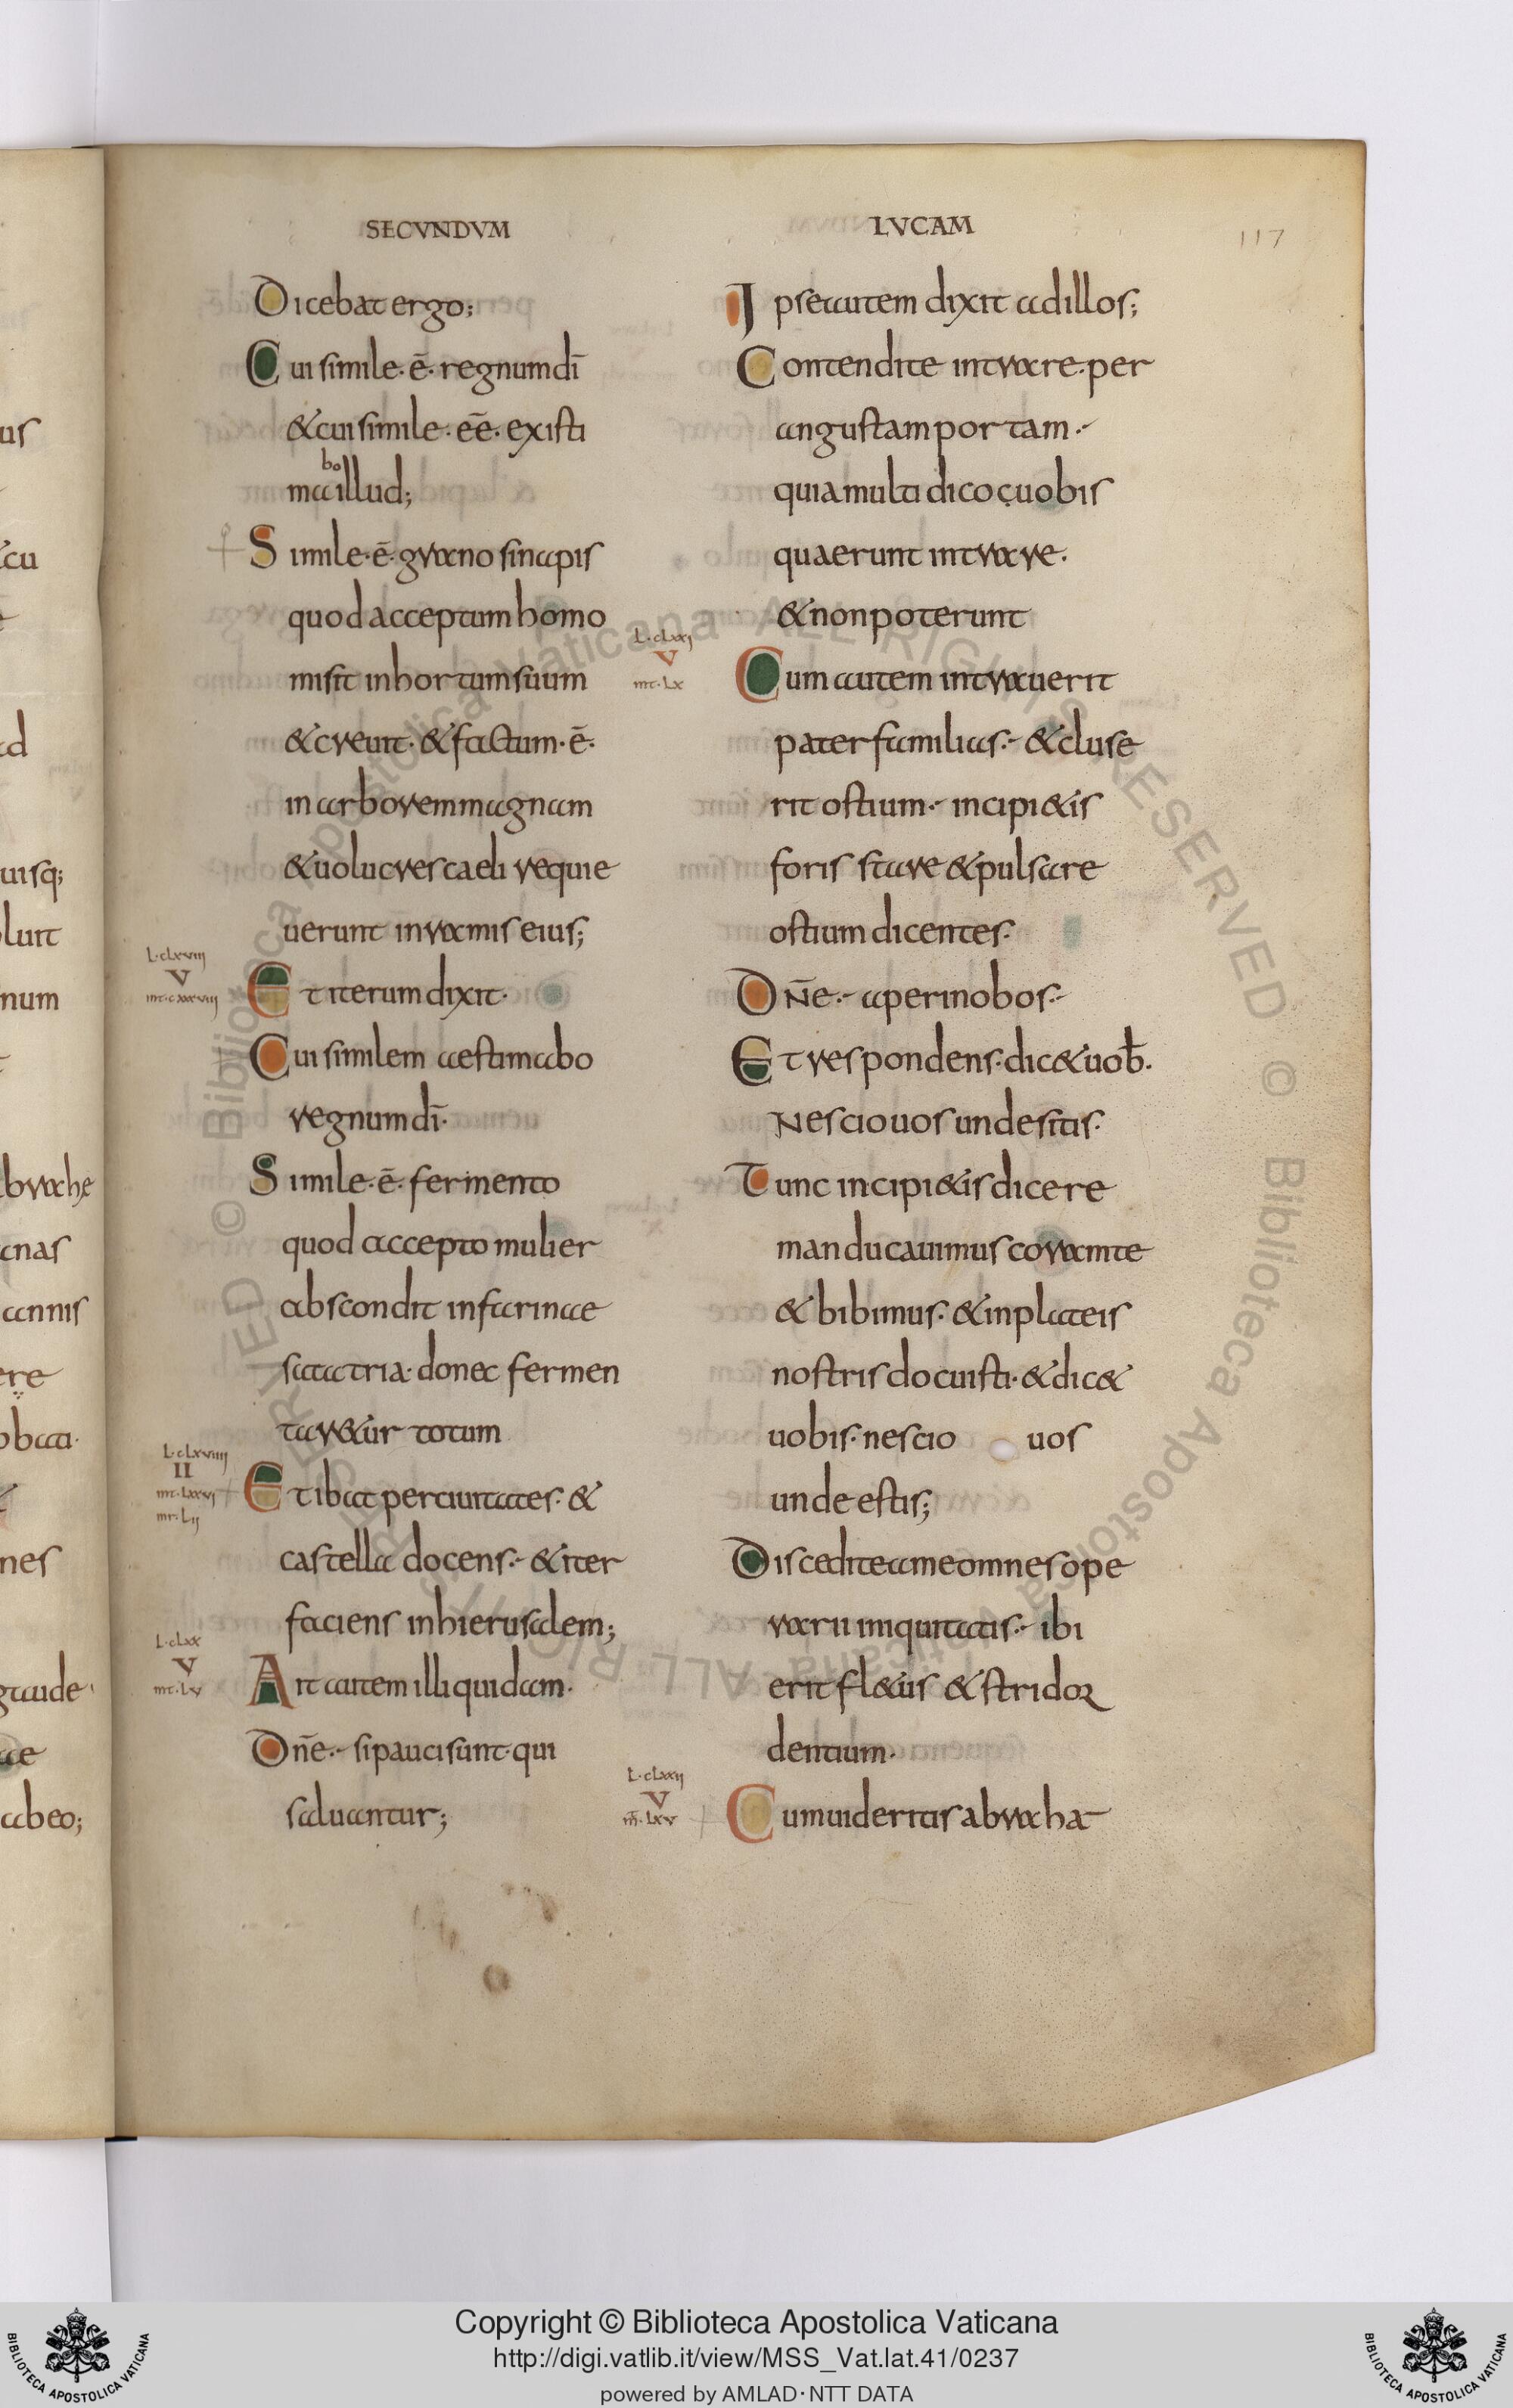 SECVNDVM
LVCAM
117
Dicebat ergo;
Cui simile·ē·regnum dī
& cui simile·eē·existi
ma illud;
bo
Simile·ē·grano sinapis
quod acceptum homo
misit in hortum suum
& creuit·& factum·ē·
in arborem magnam
& uolucres caeli requie
uerunt in ramis eius;
L·clxviii
V
mt·cxxxviii
Et iterum dixit·
Cui similem aestimabo
regnum dī·
Simile·ē·fermento
quod accepto mulier
abscondit in farinae
sata tria·donec fermen
tar&ur totum
L·clxviiii
II
mt·lxxxvi
mr·Lii
Et ibat per ciuitates·&
castella docens·& iter
faciens in hierusalem;
L·clxx
V
mt·Lv
Ait autem illi quidam·
Dn̄e·si pauci sunt·qui
saluantur;
Ipse autem dixit ad illos;
Contendite intrare·per
angustam portam·
quia multi dico uobis
quaerunt intrare·
& non poterunt
L·clxxi
V
mt·Lx
Cum autem intrauerit
pater familias·& cluse
rit ostium·incipi&is
foris stare & pulsare
ostium dicentes·
Dn̄e·aperi nobis·
Et respondens·dic& uob̄·
Nescio uos unde sitis·
Tunc incipi&is dicere
manducauimus coram te
& bibimus·& in plateis
nostris docuisti·& dic&
uobis·nescio uos
unde estis;
Discedite a me omnes ope
rarii iniquitatis·ibi
erit fl&us & stridor
dentium·
L·clxxii
V
m̄·Lxv
Cum uideritis abraha
us
cu
ad
uisq;
luit
num
brahe
annis
ere
nes
gaude
abeo;
Copyright © Biblioteca Apostolica Vaticana
http://digi.vatlib.it/view/MSS_Vat.lat.41/0237
powered by AMLAD·NTT DATA
BIBLIOTECA APOSTOLICA VATICANA
BIBLIOTECA APOSTOLICA VATICANA
© Biblioteca Apostolica Vaticana ALL RIGHTS RESERVED © Biblioteca Apostolica Vaticana ALL RIGHTS RESERVED